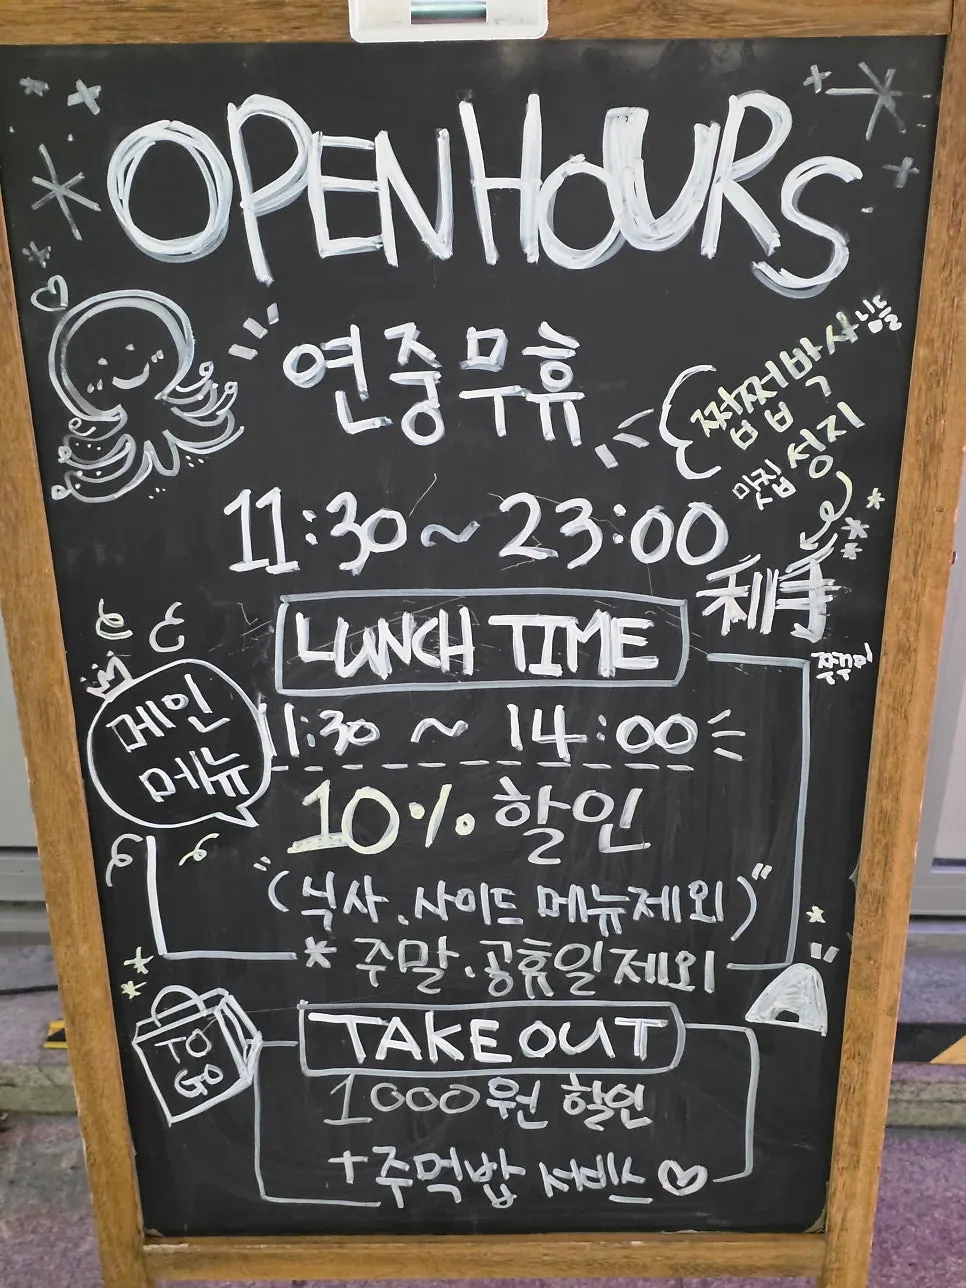 OPEN HOURS
연중무휴
쩝쩝박사님들
맛집 성지
쭈꾸미
11:30 ~ 23:00
LUNCH TIME
메인
메뉴
11:30 ~ 14:00
10% 할인
"(식사.사이드 메뉴제외)"
* 주말.공휴일 제외
TO
GO
TAKE OUT
1000원 할인
+주먹밥 서비스♡